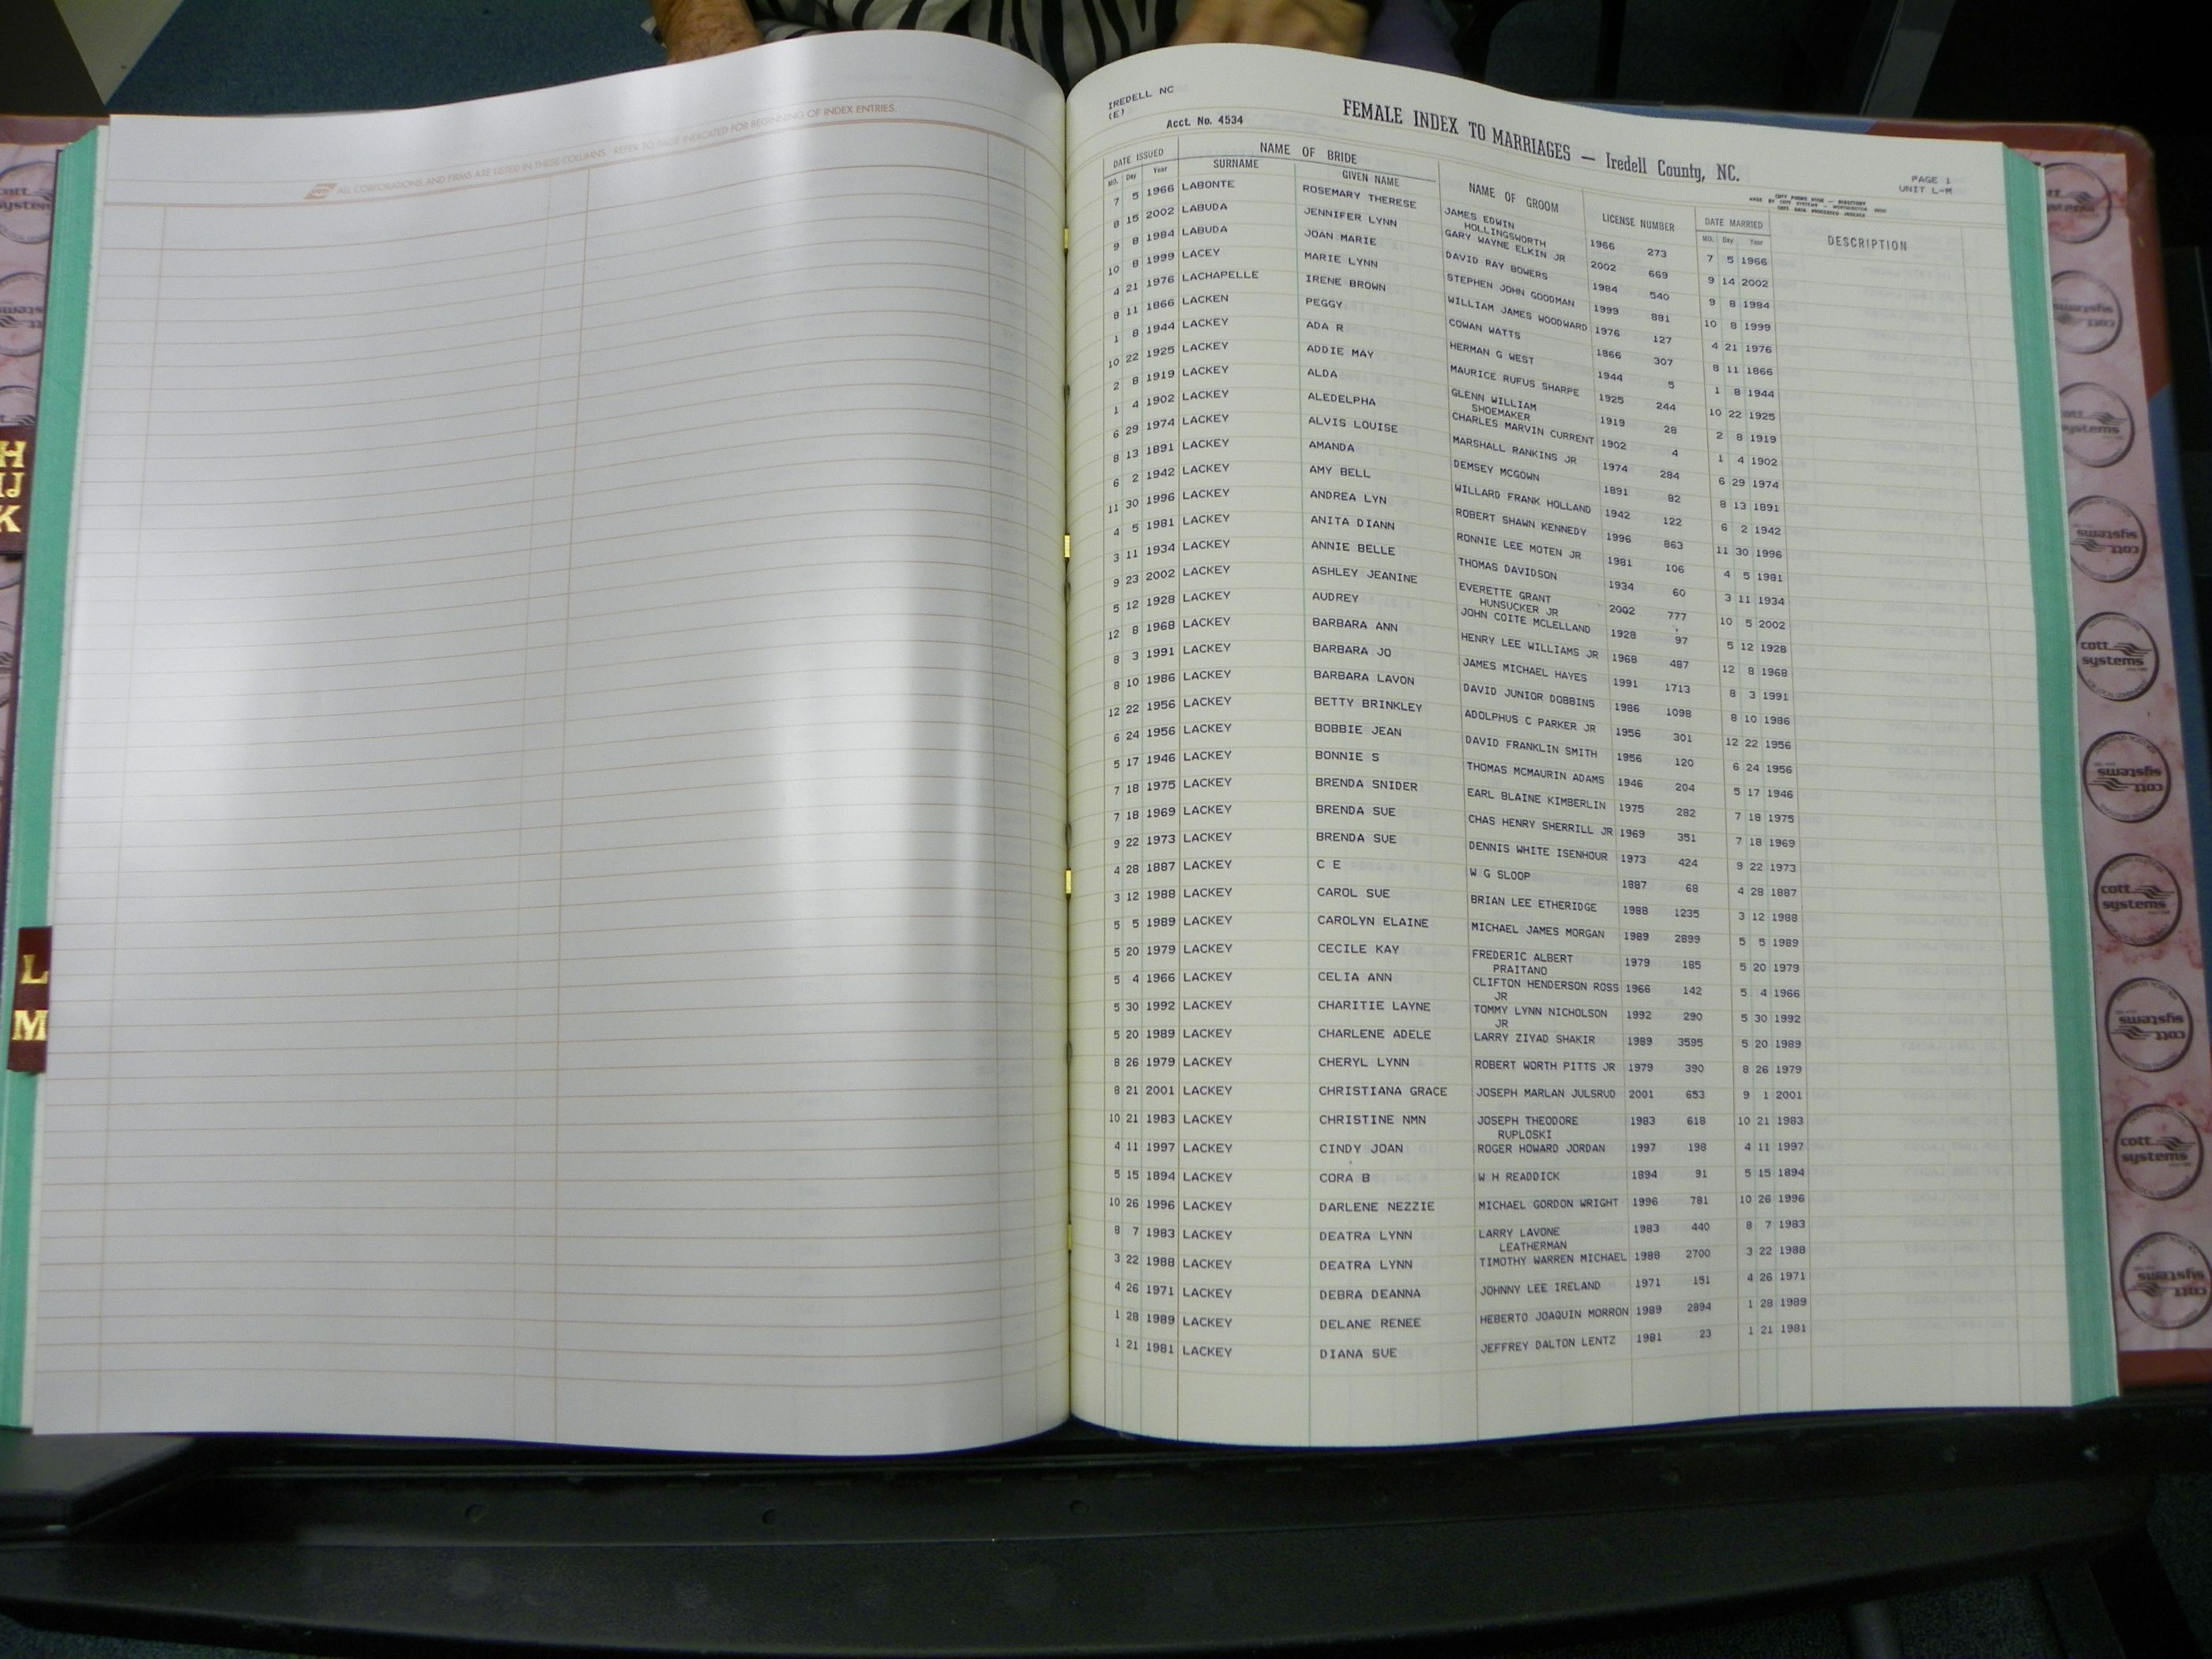 ALL CORPORATIONS AND FIRMS ARE LISTED IN THESE COLUMNS. REFER TO PAGE INDICATED FOR BEGINNING OF INDEX ENTRIES.
H
IJ
K
L
M
IREDELL NC
(E)
Acct. No. 4534
FEMALE INDEX TO MARRIAGES — Iredell County, NC.
PAGE 1
UNIT L-M
DATE ISSUED NAME OF BRIDE NAME OF GROOM LICENSE NUMBER DATE MARRIED DESCRIPTION
MO. Day Year SURNAME GIVEN NAME MO. Day Year
7 5 1966 LABONTE ROSEMARY THERESE JAMES EDWIN 1966 273 7 5 1966
HOLLINGSWORTH
8 15 2002 LABUDA JENNIFER LYNN GARY WAYNE ELKIN JR 2002 669 9 14 2002
9 8 1984 LABUDA JOAN MARIE DAVID RAY BOWERS 1984 540 9 8 1984
10 8 1999 LACEY MARIE LYNN STEPHEN JOHN GOODMAN 1999 881 10 8 1999
4 21 1976 LACHAPELLE IRENE BROWN WILLIAM JAMES WOODWARD 1976 127 4 21 1976
8 11 1866 LACKEN PEGGY COWAN WATTS 1866 307 8 11 1866
1 8 1944 LACKEY ADA R HERMAN G WEST 1944 5 1 8 1944
10 22 1925 LACKEY ADDIE MAY MAURICE RUFUS SHARPE 1925 244 10 22 1925
2 8 1919 LACKEY ALDA GLENN WILLIAM 1919 28 2 8 1919
SHOEMAKER
1 4 1902 LACKEY ALEDELPHA CHARLES MARVIN CURRENT 1902 4 1 4 1902
6 29 1974 LACKEY ALVIS LOUISE MARSHALL RANKINS JR 1974 284 6 29 1974
8 13 1891 LACKEY AMANDA DEMSEY MCGOWN 1891 82 8 13 1891
6 2 1942 LACKEY AMY BELL WILLARD FRANK HOLLAND 1942 122 6 2 1942
11 30 1996 LACKEY ANDREA LYN ROBERT SHAWN KENNEDY 1996 863 11 30 1996
4 5 1981 LACKEY ANITA DIANN RONNIE LEE MOTEN JR 1981 106 4 5 1981
3 11 1934 LACKEY ANNIE BELLE THOMAS DAVIDSON 1934 60 3 11 1934
9 23 2002 LACKEY ASHLEY JEANINE EVERETTE GRANT 2002 777 10 5 2002
HUNSUCKER JR
5 12 1928 LACKEY AUDREY JOHN COITE MCLELLAND 1928 97 5 12 1928
12 8 1968 LACKEY BARBARA ANN HENRY LEE WILLIAMS JR 1968 487 12 8 1968
8 3 1991 LACKEY BARBARA JO JAMES MICHAEL HAYES 1991 1713 8 3 1991
8 10 1986 LACKEY BARBARA LAVON DAVID JUNIOR DOBBINS 1986 1098 8 10 1986
12 22 1956 LACKEY BETTY BRINKLEY ADOLPHUS C PARKER JR 1956 301 12 22 1956
6 24 1956 LACKEY BOBBIE JEAN DAVID FRANKLIN SMITH 1956 120 6 24 1956
5 17 1946 LACKEY BONNIE S THOMAS MCMAURIN ADAMS 1946 204 5 17 1946
7 18 1975 LACKEY BRENDA SNIDER EARL BLAINE KIMBERLIN 1975 282 7 18 1975
7 18 1969 LACKEY BRENDA SUE CHAS HENRY SHERRILL JR 1969 351 7 18 1969
9 22 1973 LACKEY BRENDA SUE DENNIS WHITE ISENHOUR 1973 424 9 22 1973
4 28 1887 LACKEY C E W G SLOOP 1887 68 4 28 1887
3 12 1988 LACKEY CAROL SUE BRIAN LEE ETHERIDGE 1988 1235 3 12 1988
5 5 1989 LACKEY CAROLYN ELAINE MICHAEL JAMES MORGAN 1989 2899 5 5 1989
5 20 1979 LACKEY CECILE KAY FREDERIC ALBERT 1979 185 5 20 1979
PRAITANO
5 4 1966 LACKEY CELIA ANN CLIFTON HENDERSON ROSS 1966 142 5 4 1966
JR
5 30 1992 LACKEY CHARITIE LAYNE TOMMY LYNN NICHOLSON 1992 290 5 30 1992
JR
5 20 1989 LACKEY CHARLENE ADELE LARRY ZIYAD SHAKIR 1989 3595 5 20 1989
8 26 1979 LACKEY CHERYL LYNN ROBERT WORTH PITTS JR 1979 390 8 26 1979
8 21 2001 LACKEY CHRISTIANA GRACE JOSEPH MARLAN JULSRUD 2001 653 9 1 2001
10 21 1983 LACKEY CHRISTINE NMN JOSEPH THEODORE 1983 618 10 21 1983
RUPLOSKI
4 11 1997 LACKEY CINDY JOAN ROGER HOWARD JORDAN 1997 198 4 11 1997
5 15 1894 LACKEY CORA B W H READDICK 1894 91 5 15 1894
10 26 1996 LACKEY DARLENE NEZZIE MICHAEL GORDON WRIGHT 1996 781 10 26 1996
8 7 1983 LACKEY DEATRA LYNN LARRY LAVONE 1983 440 8 7 1983
LEATHERMAN
3 22 1988 LACKEY DEATRA LYNN TIMOTHY WARREN MICHAEL 1988 2700 3 22 1988
4 26 1971 LACKEY DEBRA DEANNA JOHNNY LEE IRELAND 1971 151 4 26 1971
1 28 1989 LACKEY DELANE RENEE HEBERTO JOAQUIN MORRON 1989 2894 1 28 1989
1 21 1981 LACKEY DIANA SUE JEFFREY DALTON LENTZ 1981 23 1 21 1981
cott systems
cott systems
cott systems
cott systems